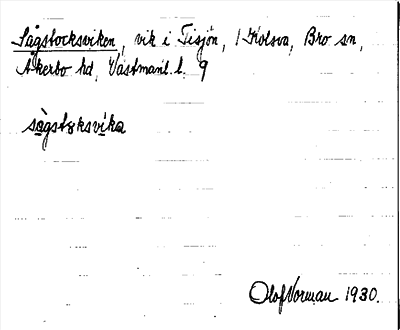 Sågstocksviken, vik i Tisjön, 1 Kolsva, Bro sn,
Åkerbo hd, Västmanl. l. 9
sågstoksvika
Olof Vorman 1930.